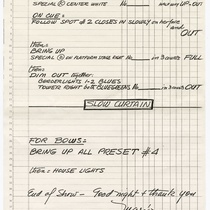 SPECIAL @ CENTER WHITE № HALF UP-OUT
ON CUE:
FOLLOW SPOT #2 CLOSES IN SLOWLY ON her face
and OUT
then:
BRING UP
SPECIAL @ ON PLATFORM STAGE № in 3 counts FULL
then:
DIM OUT together:
BORDERLIGHTS 1-2 BLUES
TOWER RIGHT BLUEGREENS № in 3 counts OUT
SLOW CURTAIN
FOR BOWS:
BRING UP ALL PRESET #4
then: HOUSE LIGHTS
End of Show - Good night & thank you